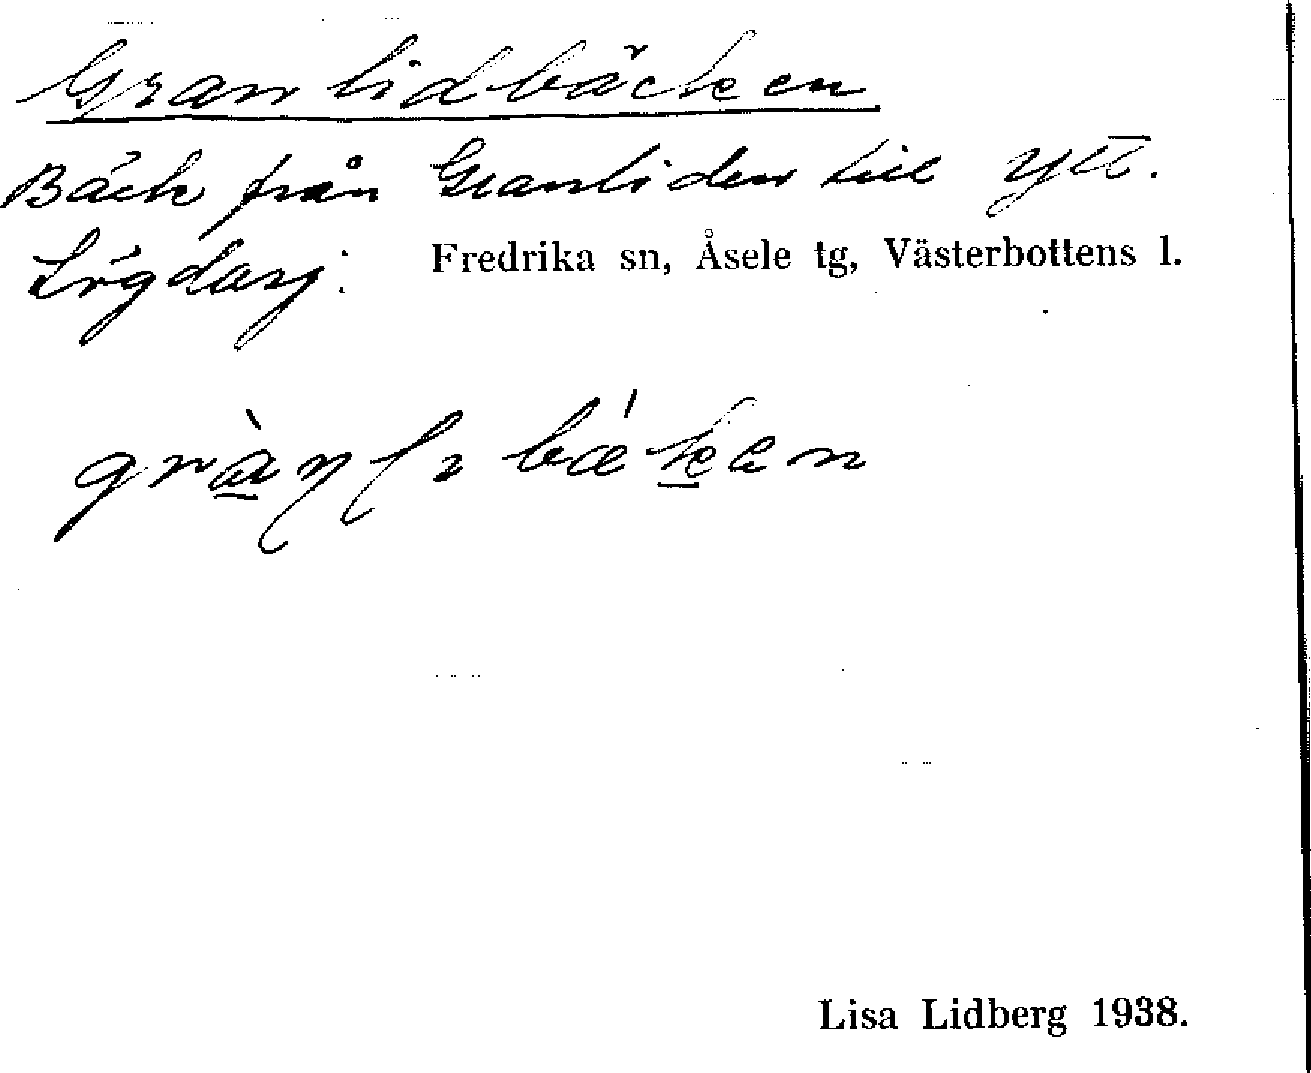 Granlidbäcken
Bäck från Granliden till Ytt.
Lögdasj.
Fredrika sn, Åsele tg, Västerbottens l.
Lisa Lidberg 1938.